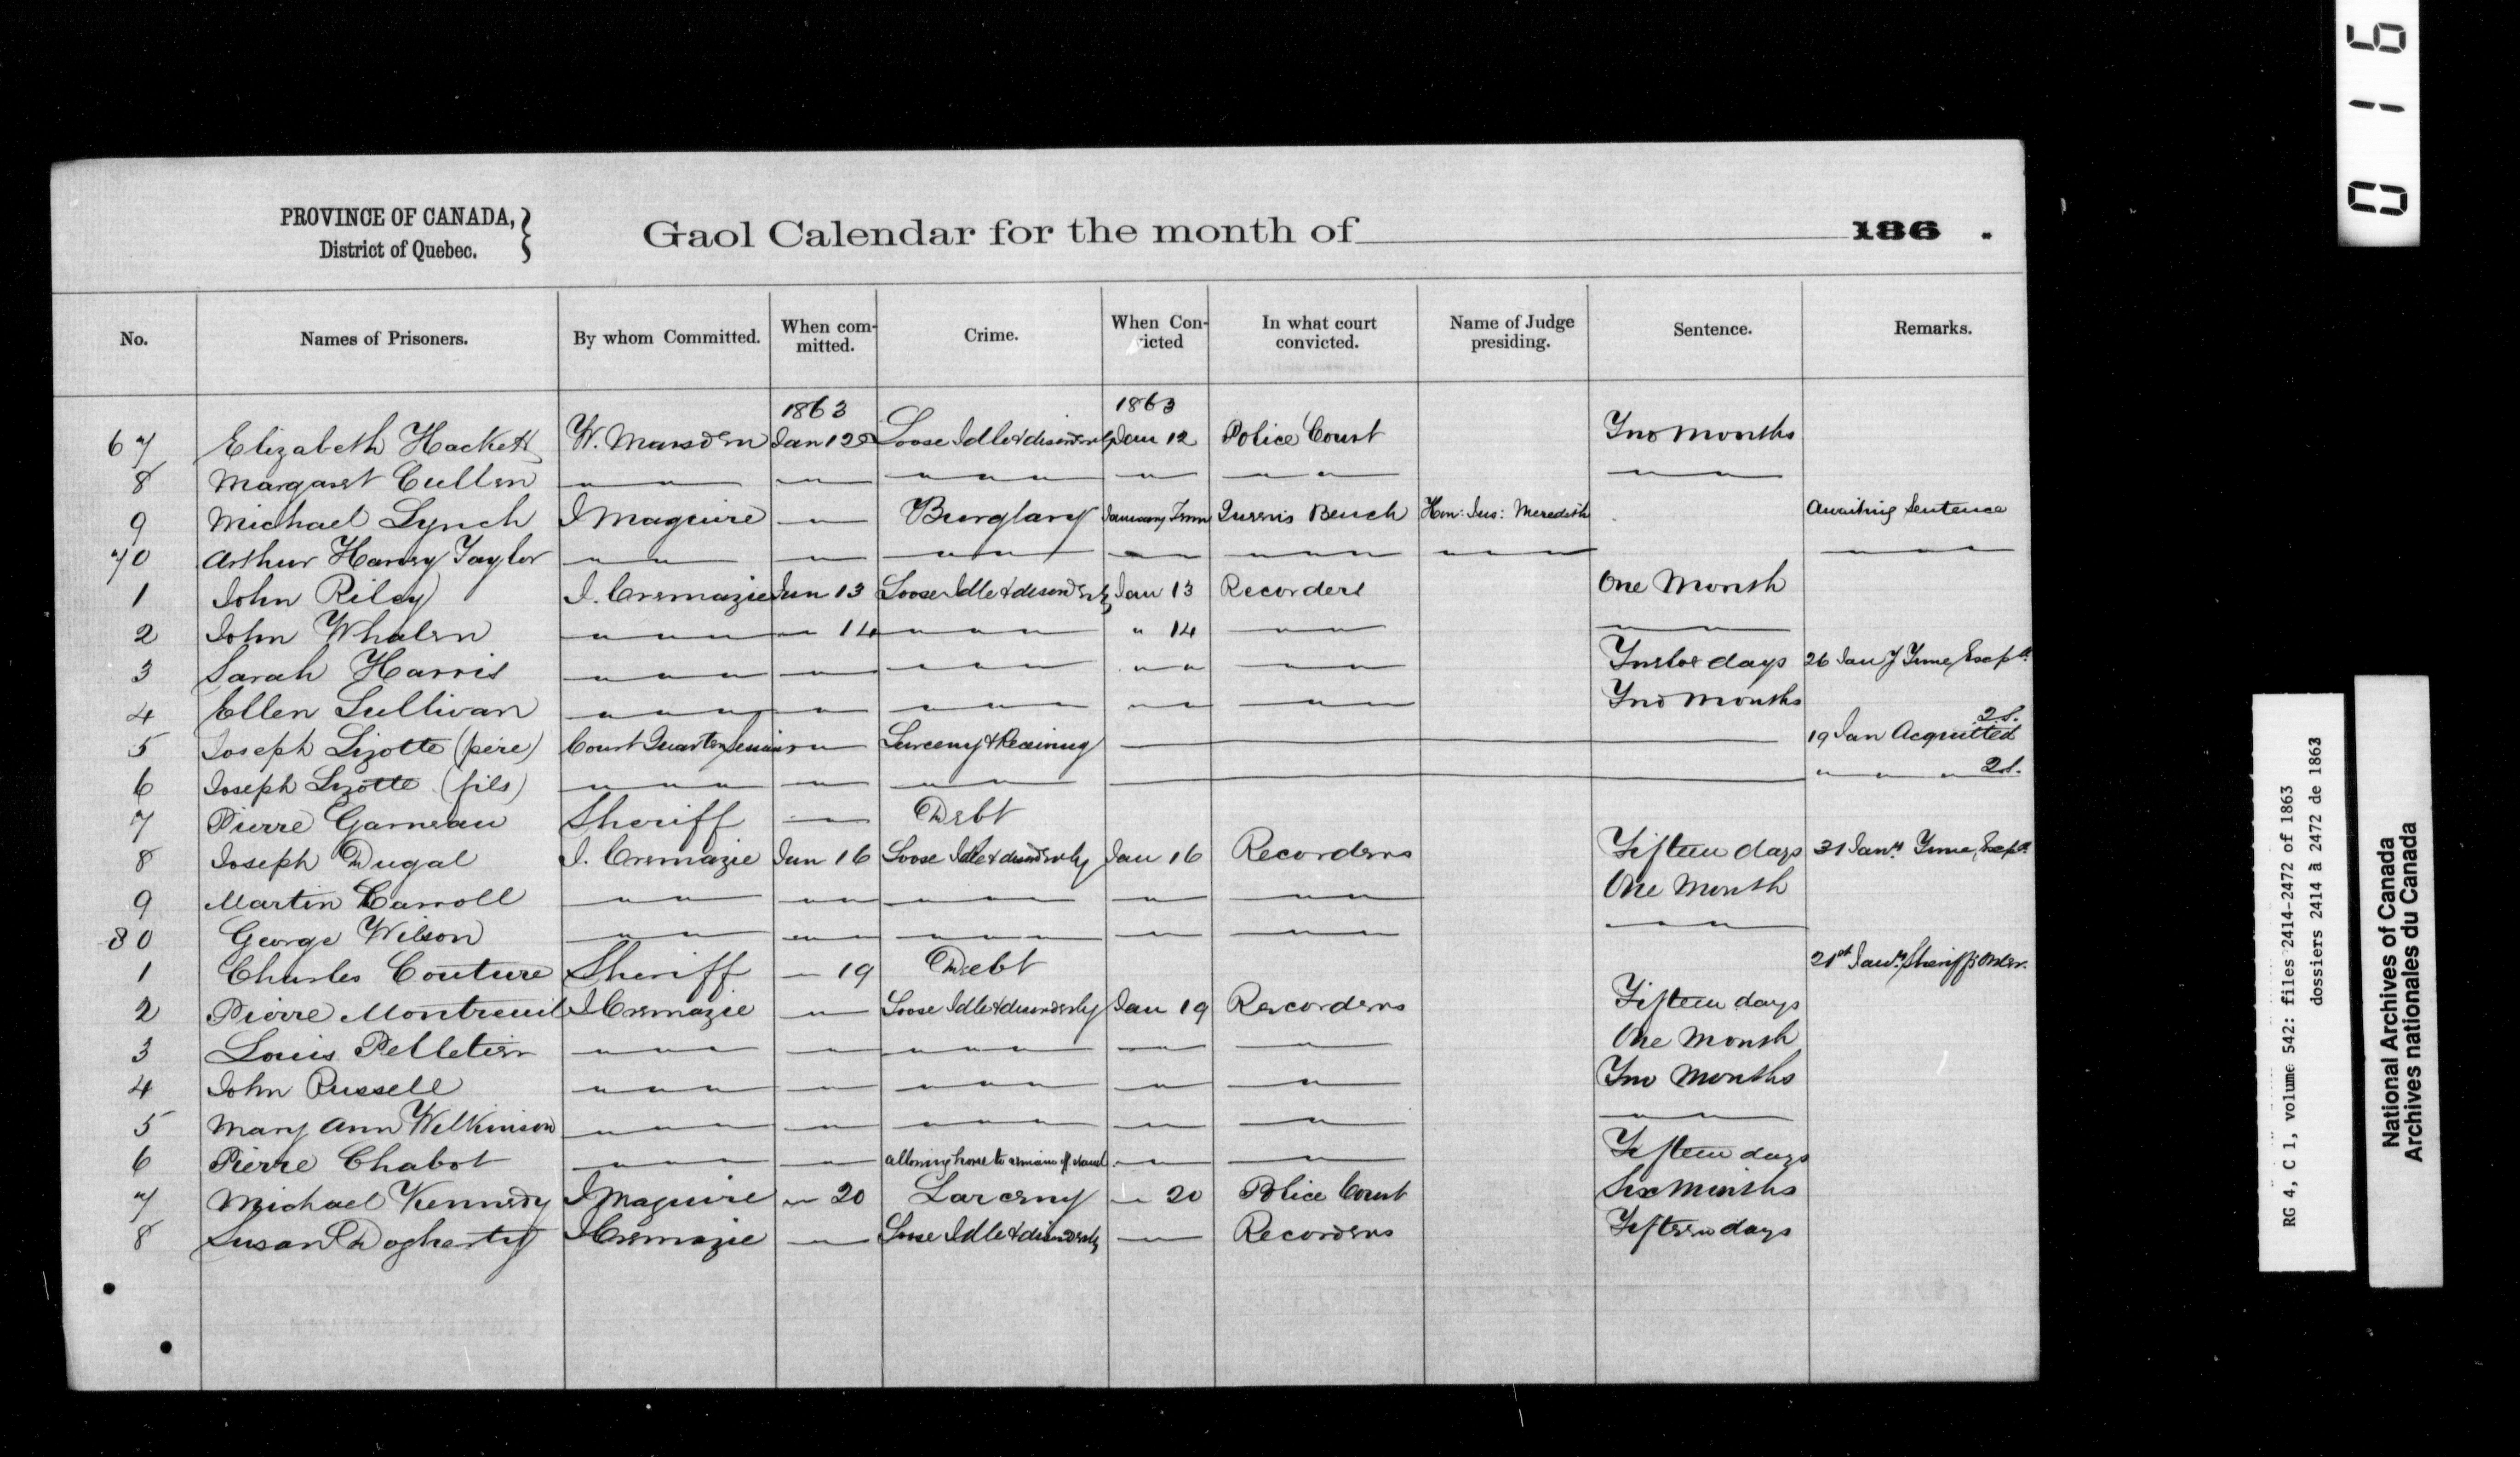 PROVINCE OF CANADA,
District of Quebec.
Gaol Calendar for the month of 186 .
No. Names of Prisoners. By whom Committed. When committed. Crime. When Convicted In what court convicted. Name of Judge presiding. Sentence. Remarks.
1863 1863
67 Elizabeth Hackett W. Marsden Jan 12 Loose Idle & disorderly Jan 12 Police Court Two Months
8 Margaret Cullen — — — — — —
9 Michael Lynch J Maguire — Burglary January Term Queens Bench Hon: Jus: Meredith Awaiting Sentence
70 Arthur Harvey Taylor — — — — — — —
1 John Riley J. Cremazie Jan 13 Loose Idle & disorderly Jan 13 Recorders One Month
2 John Whalen — — 14 — " 14 — —
3 Sarah Harris — — — " " — Twelve days 26 Jany Time Expd.
4 Ellen Sullivan — — — — — Two Months
5 Joseph Lizotte (père) Court Quarter Session — Larceny & Receiving — 19 Jan Acquitted 2S.
6 Joseph Lizotte (fils) — — — — " " " 2S.
7 Pierre Garneau Sheriff — Debt
8 Joseph Dugal J. Cremazie Jan 16 Loose Idle & disorderly Jan 16 Recorders Fifteen days 31 Jany. Time Expd.
9 Martin Carroll — — — — — One Month
80 George Wilson — — — — — —
1 Charles Couture Sheriff — 19 Debt 21st Jany. Sheriffs Order.
2 Pierre Montreuil J Cremazie — Loose Idle & disorderly Jan 19 Recorders Fifteen days
3 Louis Pelletier — — — — — One Month
4 John Russell — — — — — Two Months
5 Mary Ann Wilkinson — — — — — —
6 Pierre Chabot — — allowing horse to remain off stand — — Fifteen days
7 Michael Kennedy J Maguire — 20 Larceny — 20 Police Court Six Months
8 Susan Dogherty J Cremazie — Loose Idle & disorderly — Recorders Fifteen days
0 1 6
RG 4, C 1, volume 542: files 2414-2472 of 1863
dossiers 2414 à 2472 de 1863
National Archives of Canada
Archives nationales du Canada